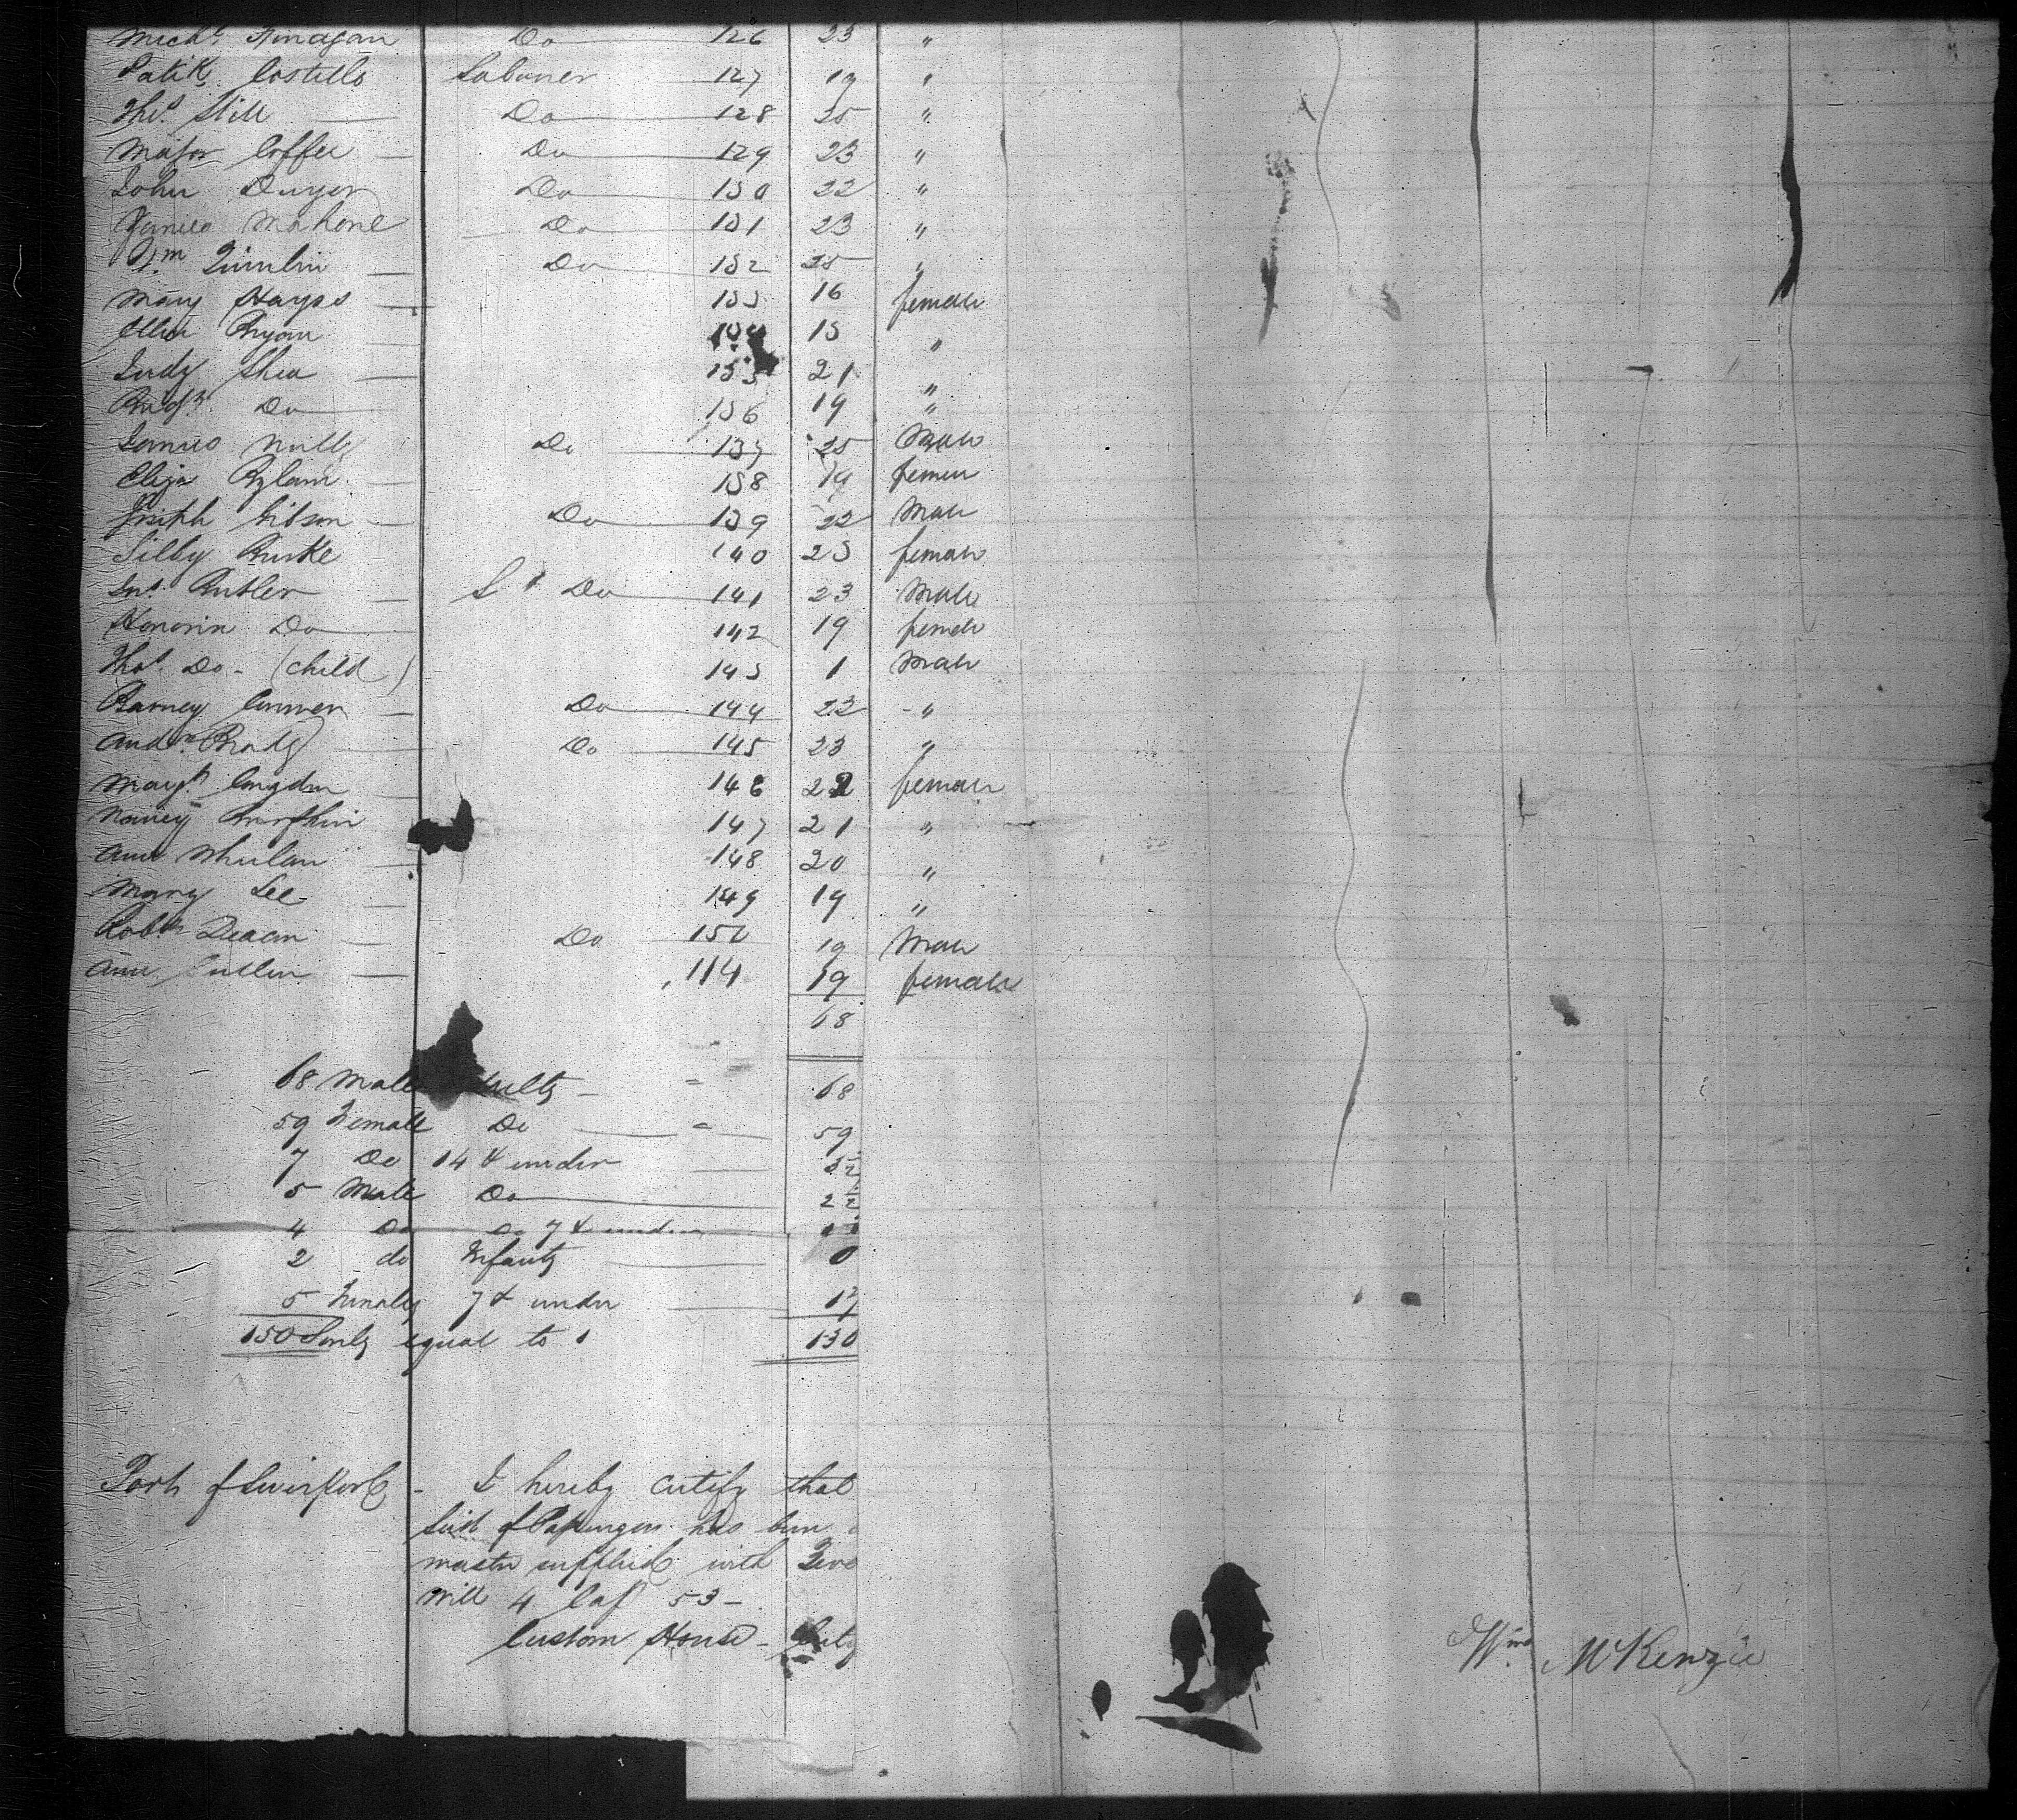 Michl Finagan Do 126 23 "
Patik Costello Labourer 127 19 "
Thos Still Do 128 25 "
Major Coffee Do 129 23 "
John Dwyer Do 130 22 "
James Mahone Do 131 23 "
Wm Quinlin Do 132 25 "
Mary Hayes 133 16 female
Ellen Ryan 134 15 "
Judy Shea 135 21 "
Bridgt Do 136 19 "
James Nulty Do 137 25 Male
Eliza 138 19 female
Joseph Gibson Do 139 22 Male
Silby Burke 140 25 female
Jno Butler Do 141 23 Male
Honoria Do 142 19 female
Thos Do - (Child) 143 1 Male
Barney Connor Do 144 22 "
Andw Brady Do 145 23 "
Margt 146 22 female
Nancy 147 21 "
Ann Whelan 148 20 "
Mary Lee 149 19 "
Robt Deacon Do 150 19 Male
Ann 114 19 female
68
68 Male Adults - 68
59 Female Do 59
7 Do 14 & under
5 Male Do 2½
4 Do Do 7 & under
2 do Infants 0
5 Females 7 & under
150 Souls equal to 130
Port of Liverpool - I hereby certify that
List of Passengers has been
master supplied with
Will 4 Cap 53 -
Custom House -
Wm McKenzie